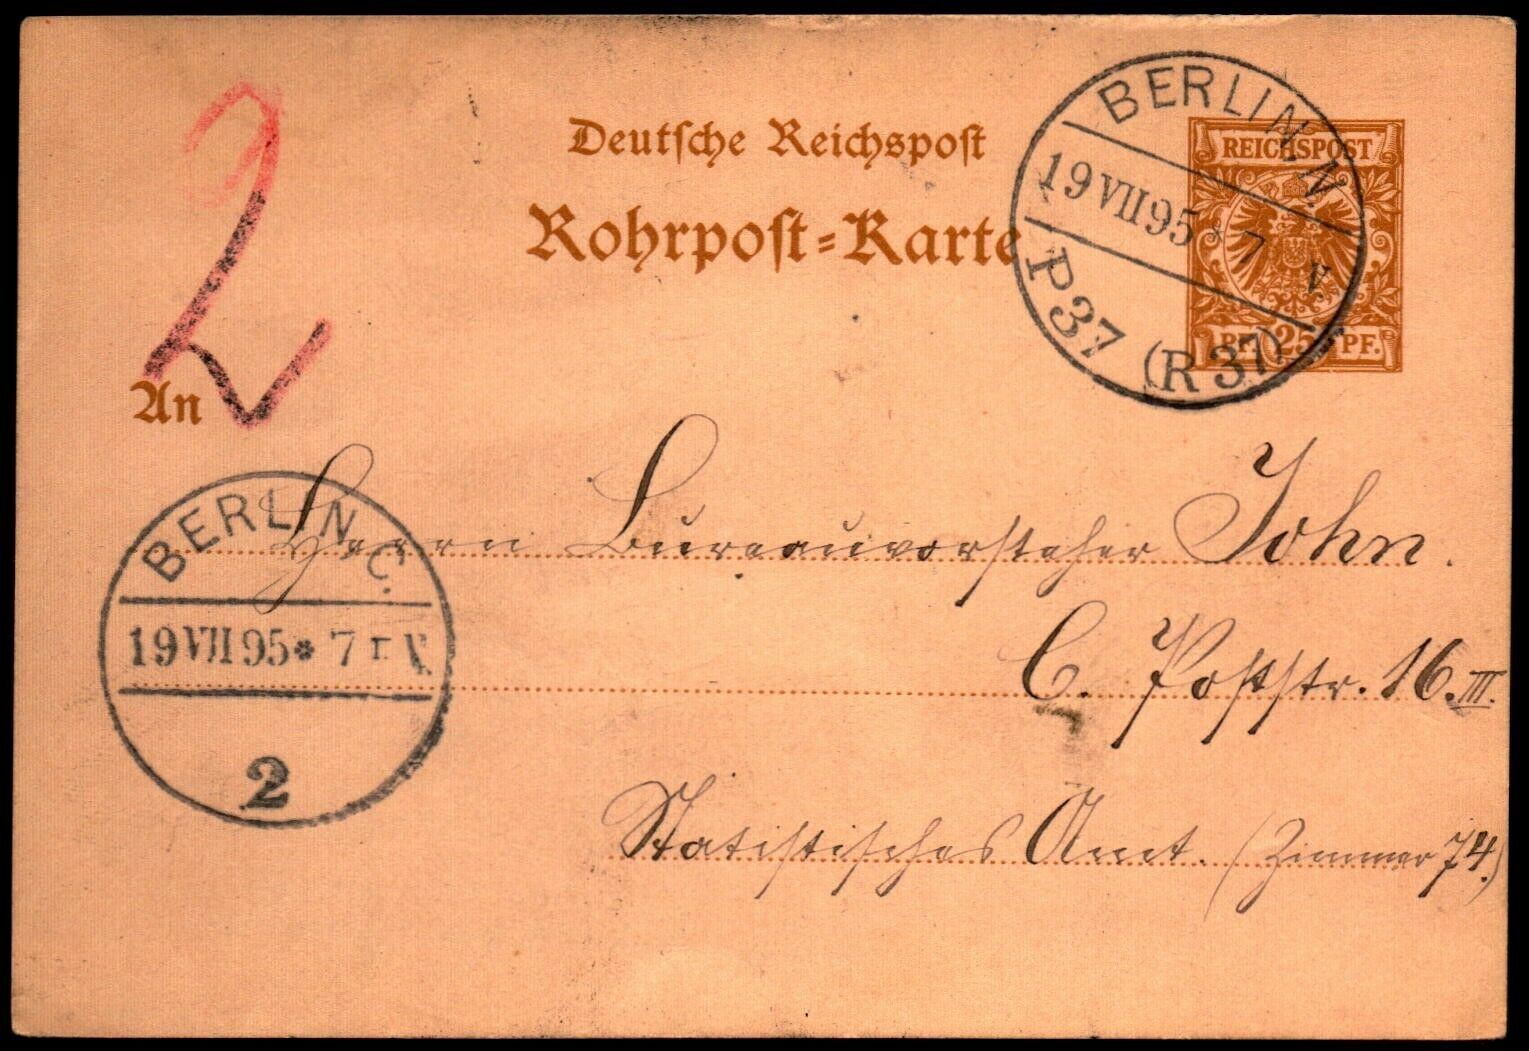 2
Deutsche Reichspost
Rohrpost=Karte
REICHSPOST
PF. 25 PF.
BERLIN. N.
19 VII 95 * 7 V
P 37 (R 37)
An
Herrn Bureauvorsteher John.
C. Poststr. 16. III.
Statistisches Amt. (Zimmer 74.)
BERLIN C.
19 VII 95 * 7 V
2